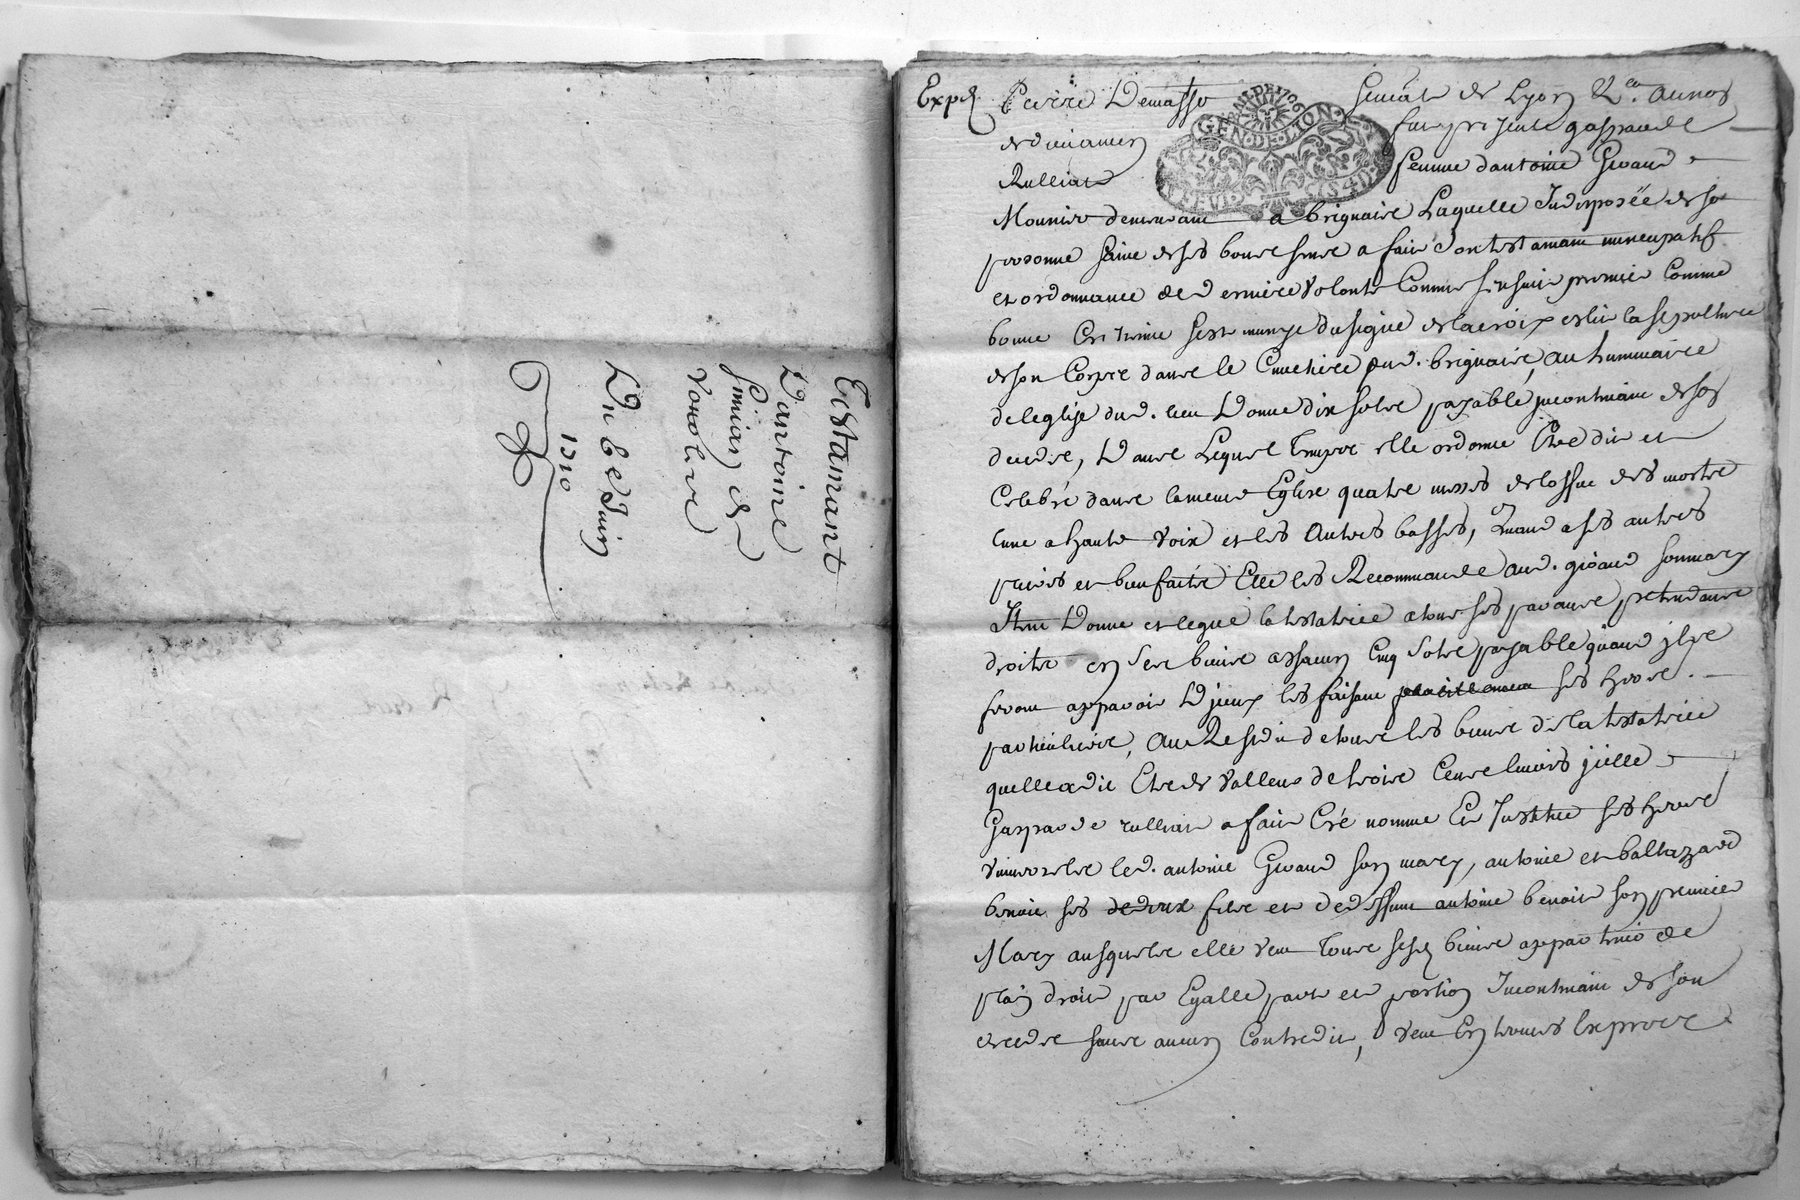 Testamant
D'antoine
Simian de
Vourles
Du 6e Juin
1710
Expé.
Pierre Demasso
Senéal de Lyon
aunos
BAIL DE 1706
GEN. DE LION
Rulliat
furent presente gasparde
femme dantoine Giraud
Mounier demeurant a brignaire Laquelle Indisposée de sa
personne saine de ses bons sens a fait son testamant nuncupatif
et ordonnance de derniere volonté Comme sensuit premier Comme
bonne Cretienne sest munye du signe de la croix eslit la sepulture
de son Corps dans le Cimetiere dud. brignaire, au luminaire
de leglise dud. lieu Donne dix sols payable incontinant
decés, Dans Lequel temps elle ordonne Etre dit et
Celebré dans la meme Eglise quatre messes de loffice des morts
lune a haute voix et les autres basses, Quand a ses autres
prieres et bienfaits Elle les Recommande aud. giraud son mary
Item Donne et legue la testatrice a tous ses parans pretendants
droits en ses biens a chacun Cinq sols payable quand ils
feront apparoir D'iceux les faisant ses
particuliers, Au Residu de tous les biens de la testatrice
quelle a dit Etre de valleur de trois Cens livres jcelle
Gasparde rulliat a fait Cré nommé Et Institue ses
universels led. antoine Giraud son mary, antoine et baltazard
benoit ses deux fils et de deffunt antoine benoit son premier
Mary ausquels elle veut tous ses biens appartenir de
plain droit par Egalle part et portion Incontinant de son
decedés sans aucun Contredit, veut